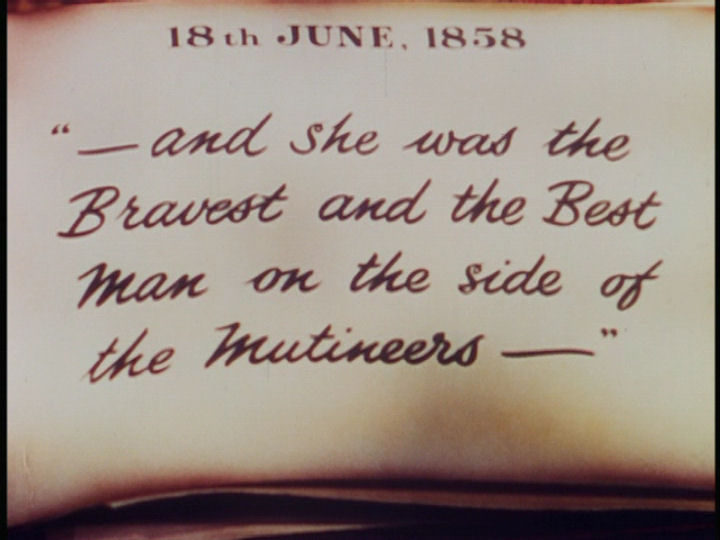 18th JUNE, 1858
"—and she was the
Bravest and the Best
Man on the side of
the Mutineers—"